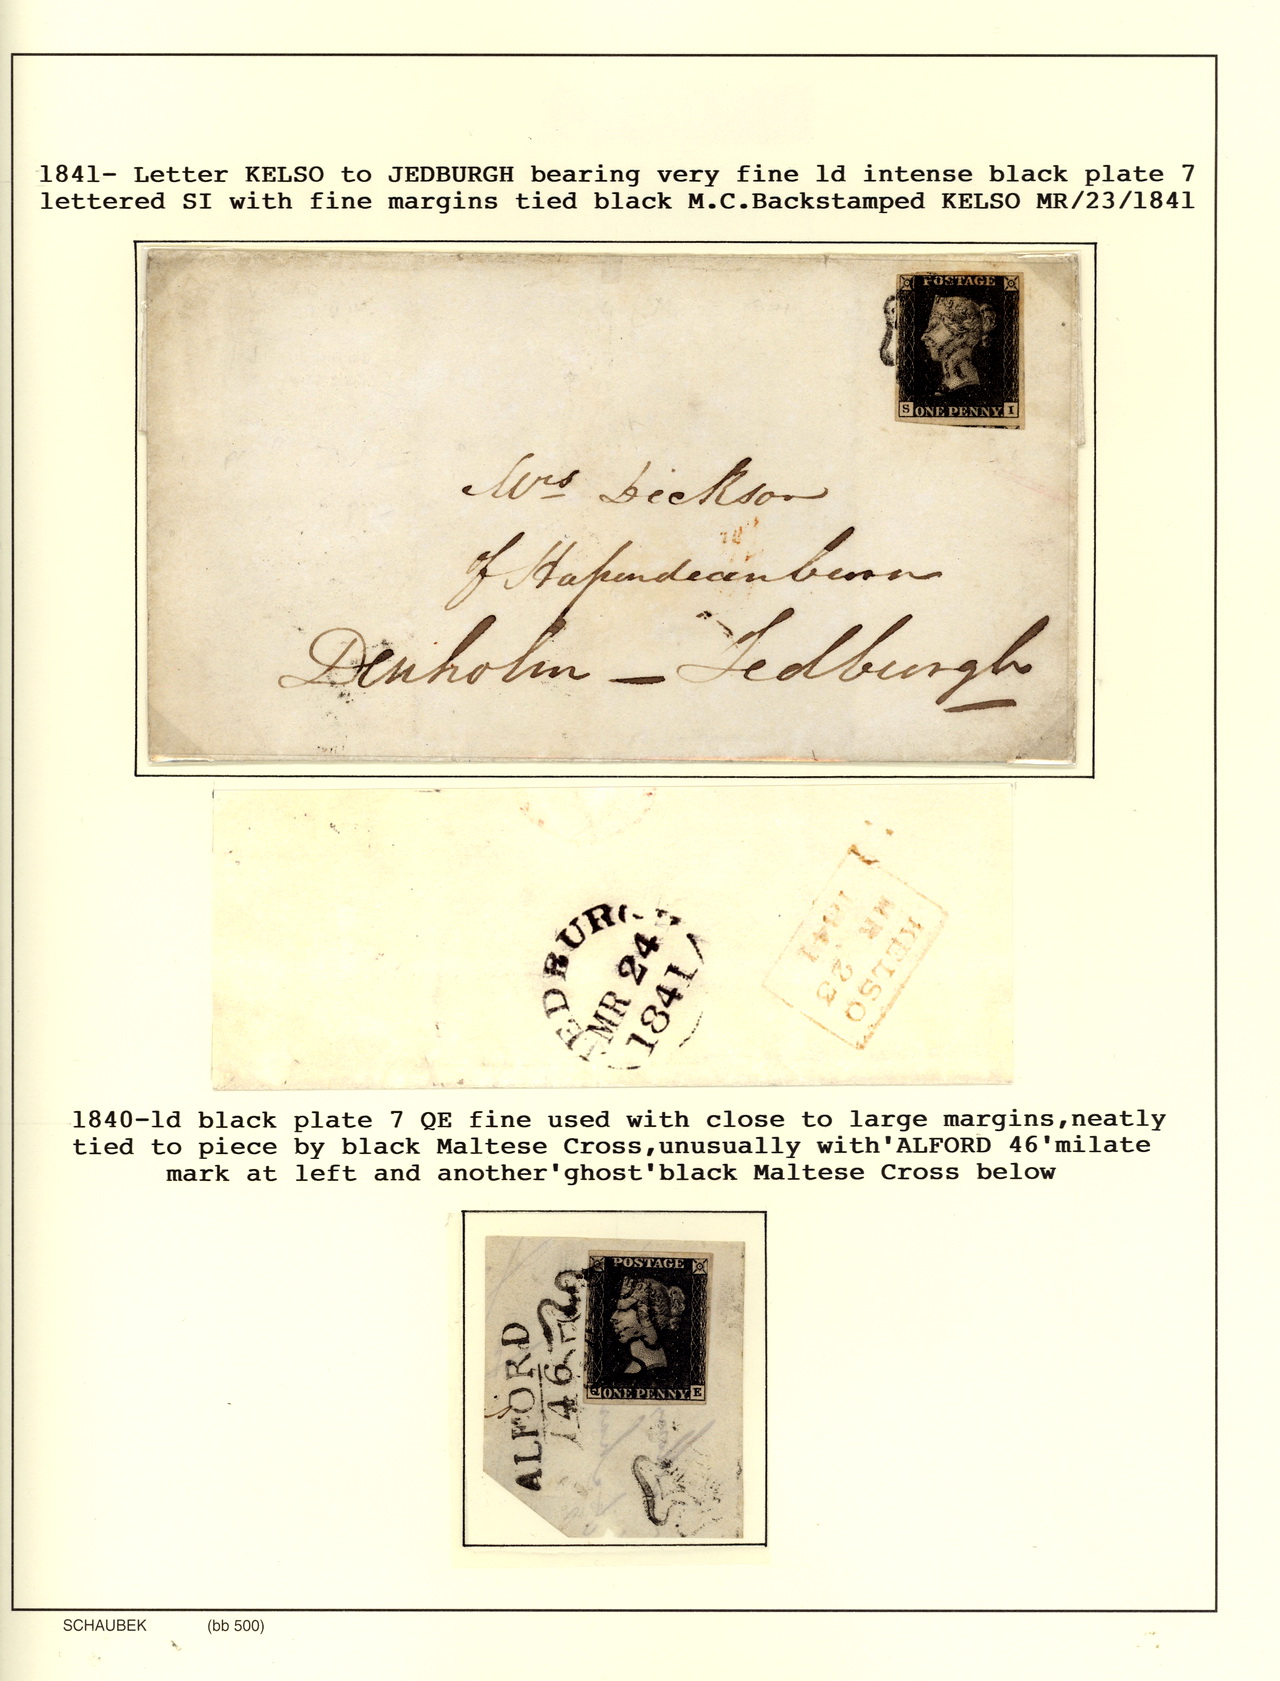 1841- Letter KELSO to JEDBURGH bearing very fine 1d intense black plate 7
lettered SI with fine margins tied black M.C.Backstamped KELSO MR/23/1841
POSTAGE
S ONE PENNY I
Mrs Dickson
of Hapendeanburn
Denholm — Jedburgh
JEDBURGH
MR 24
1841
KELSO
MR 23
1841
1840-1d black plate 7 QE fine used with close to large margins,neatly
tied to piece by black Maltese Cross,unusually with'ALFORD 46'milate
mark at left and another'ghost'black Maltese Cross below
ALFORD
146
POSTAGE
Q ONE PENNY E
SCHAUBEK (bb 500)